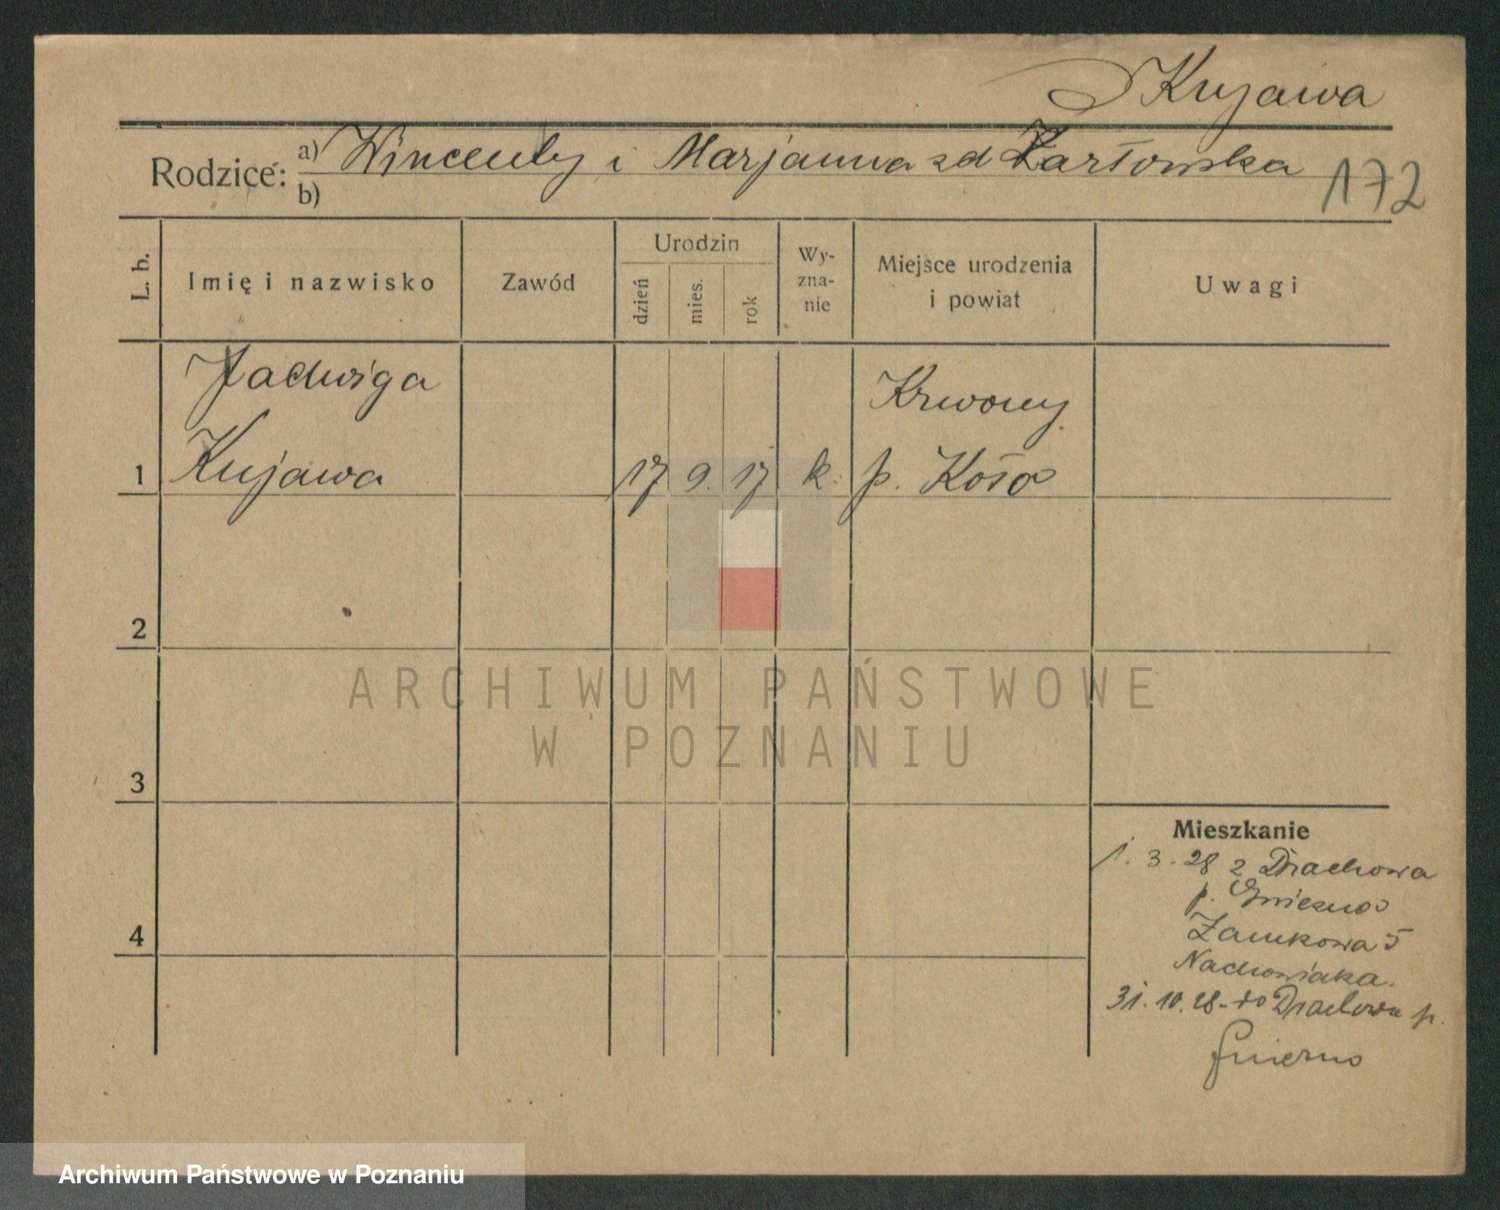 Kujawa
Rodzice: a) Wincenty i Marjanna zd Żarłowska
b)
172
L. b.
Imię i nazwisko
Zawód
Urodzin
dzień
mies.
rok
Wy-
zna-
nie
Miejsce urodzenia
i powiat
Uwagi
Jadwiga
Krwony
1 Kujawa 17 9. 17 k. p. Koło
2
3
4
Mieszkanie
1. 3. 28 z Drachowa
p. Gniezno
Zamkowa 5
Nachowiaka.
31. 10. 28 - do Drachowa p.
Gniezno
ARCHIWUM PAŃSTWOWE
W POZNANIU
Archiwum Państwowe w Poznaniu